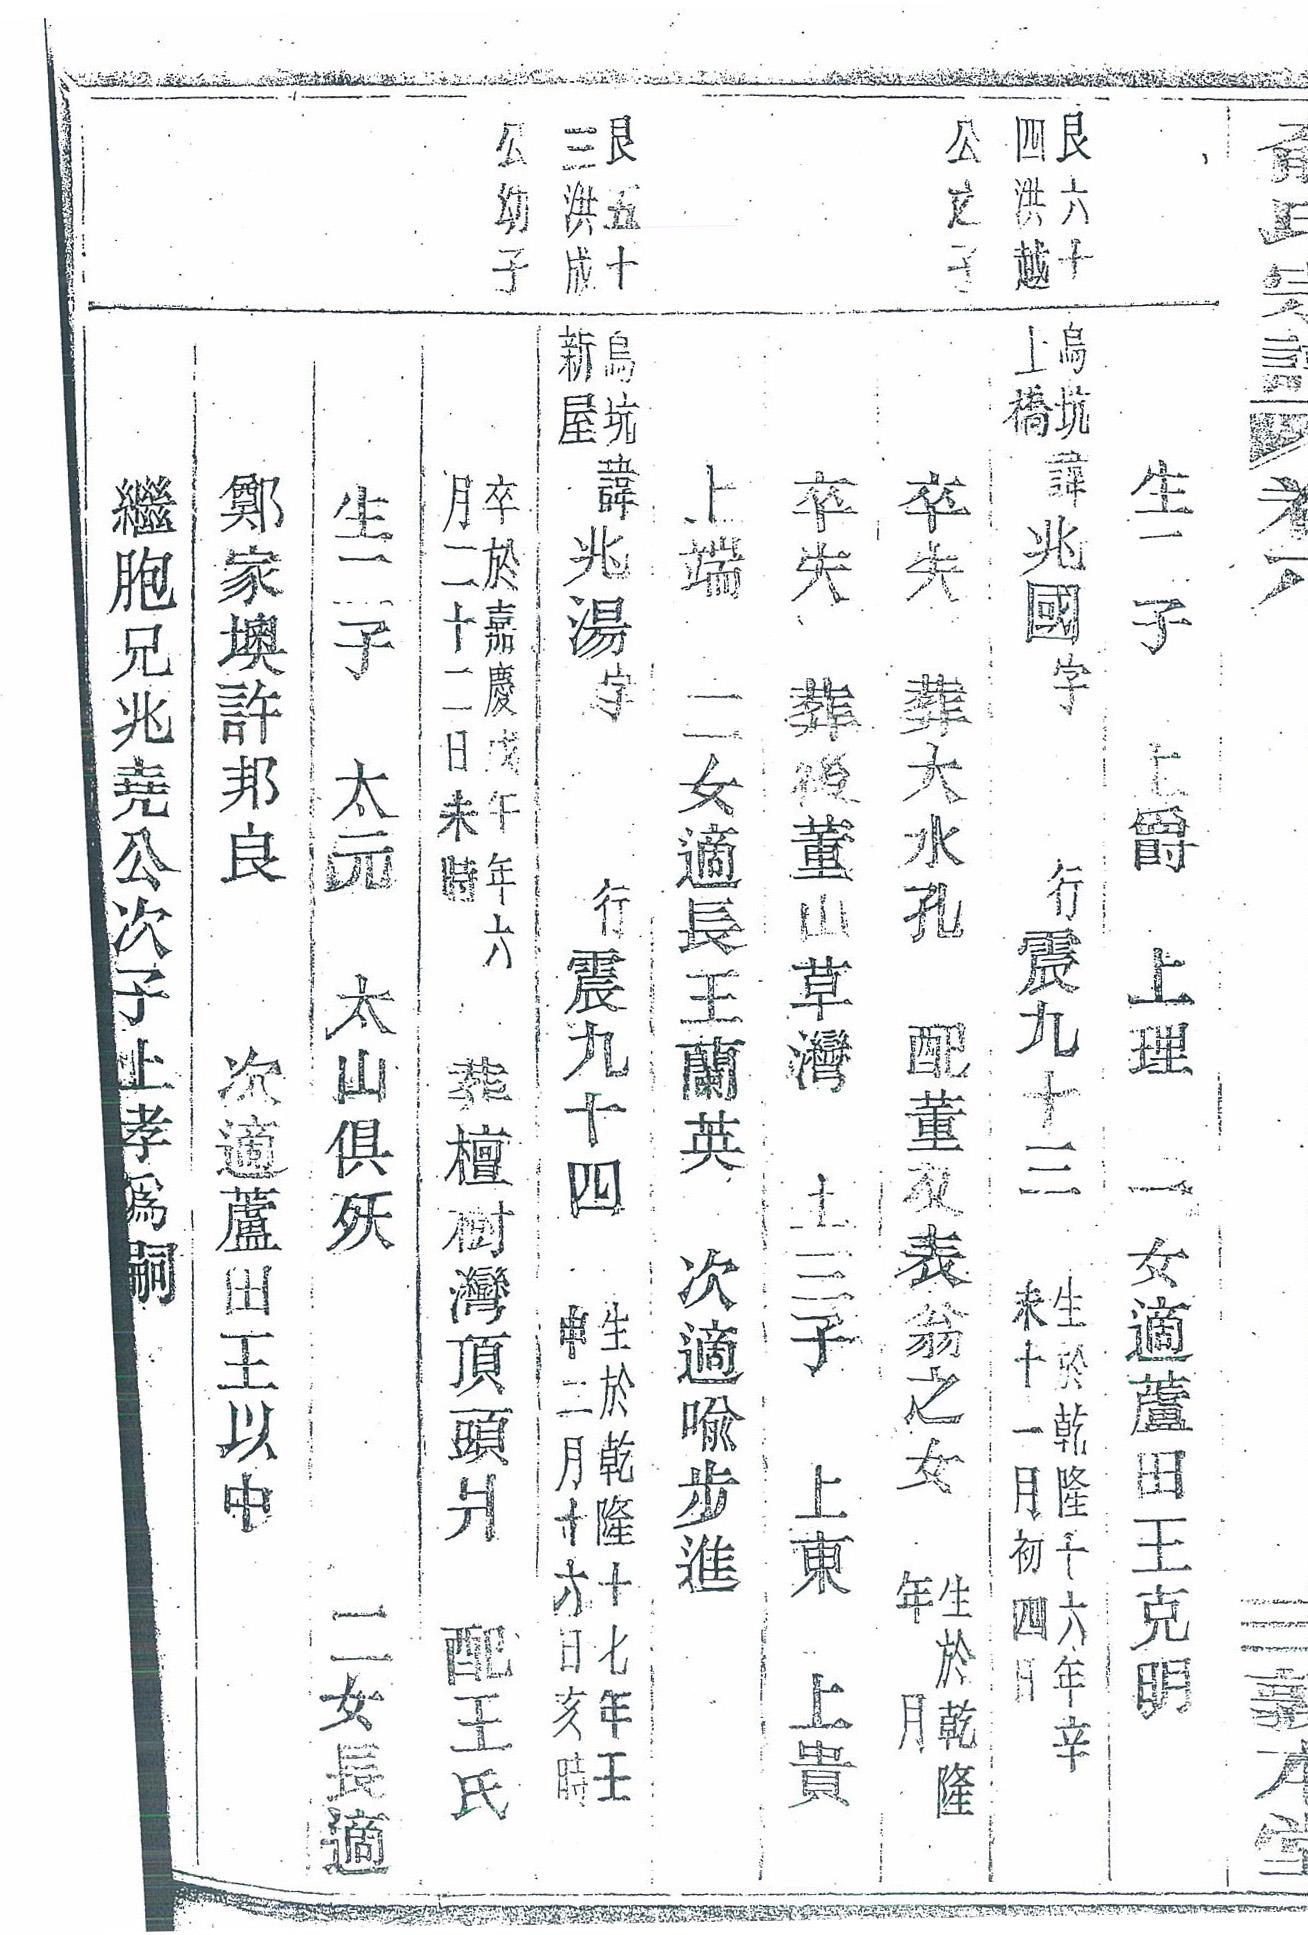 氏宗譜 卷六 敦本堂
生二子 上爵 上理 一女適蘆田王克明
艮六十四洪越公之子
烏坑上橋 諱兆國字 行震九十三 生於乾隆十六年辛未十一月初四日
卒失 葬大水孔 配董 表翁之女 生於乾隆 年 月
卒失 葬後董山草灣 三子 上東 上貴
上端 二女適長王蘭英 次適喻步進
艮五十三洪成公幼子
烏坑新屋 諱兆湯字 行震九十四 生於乾隆十七年壬申二月十六日亥時
卒於嘉慶戊午年六月二十二日未時 葬檀樹灣頂頭爿 配王氏
生二子 太元 太山俱殀 二女長適
鄭家墺許邦良 次適蘆田王以中
繼胞兄兆堯公次子上孝爲嗣